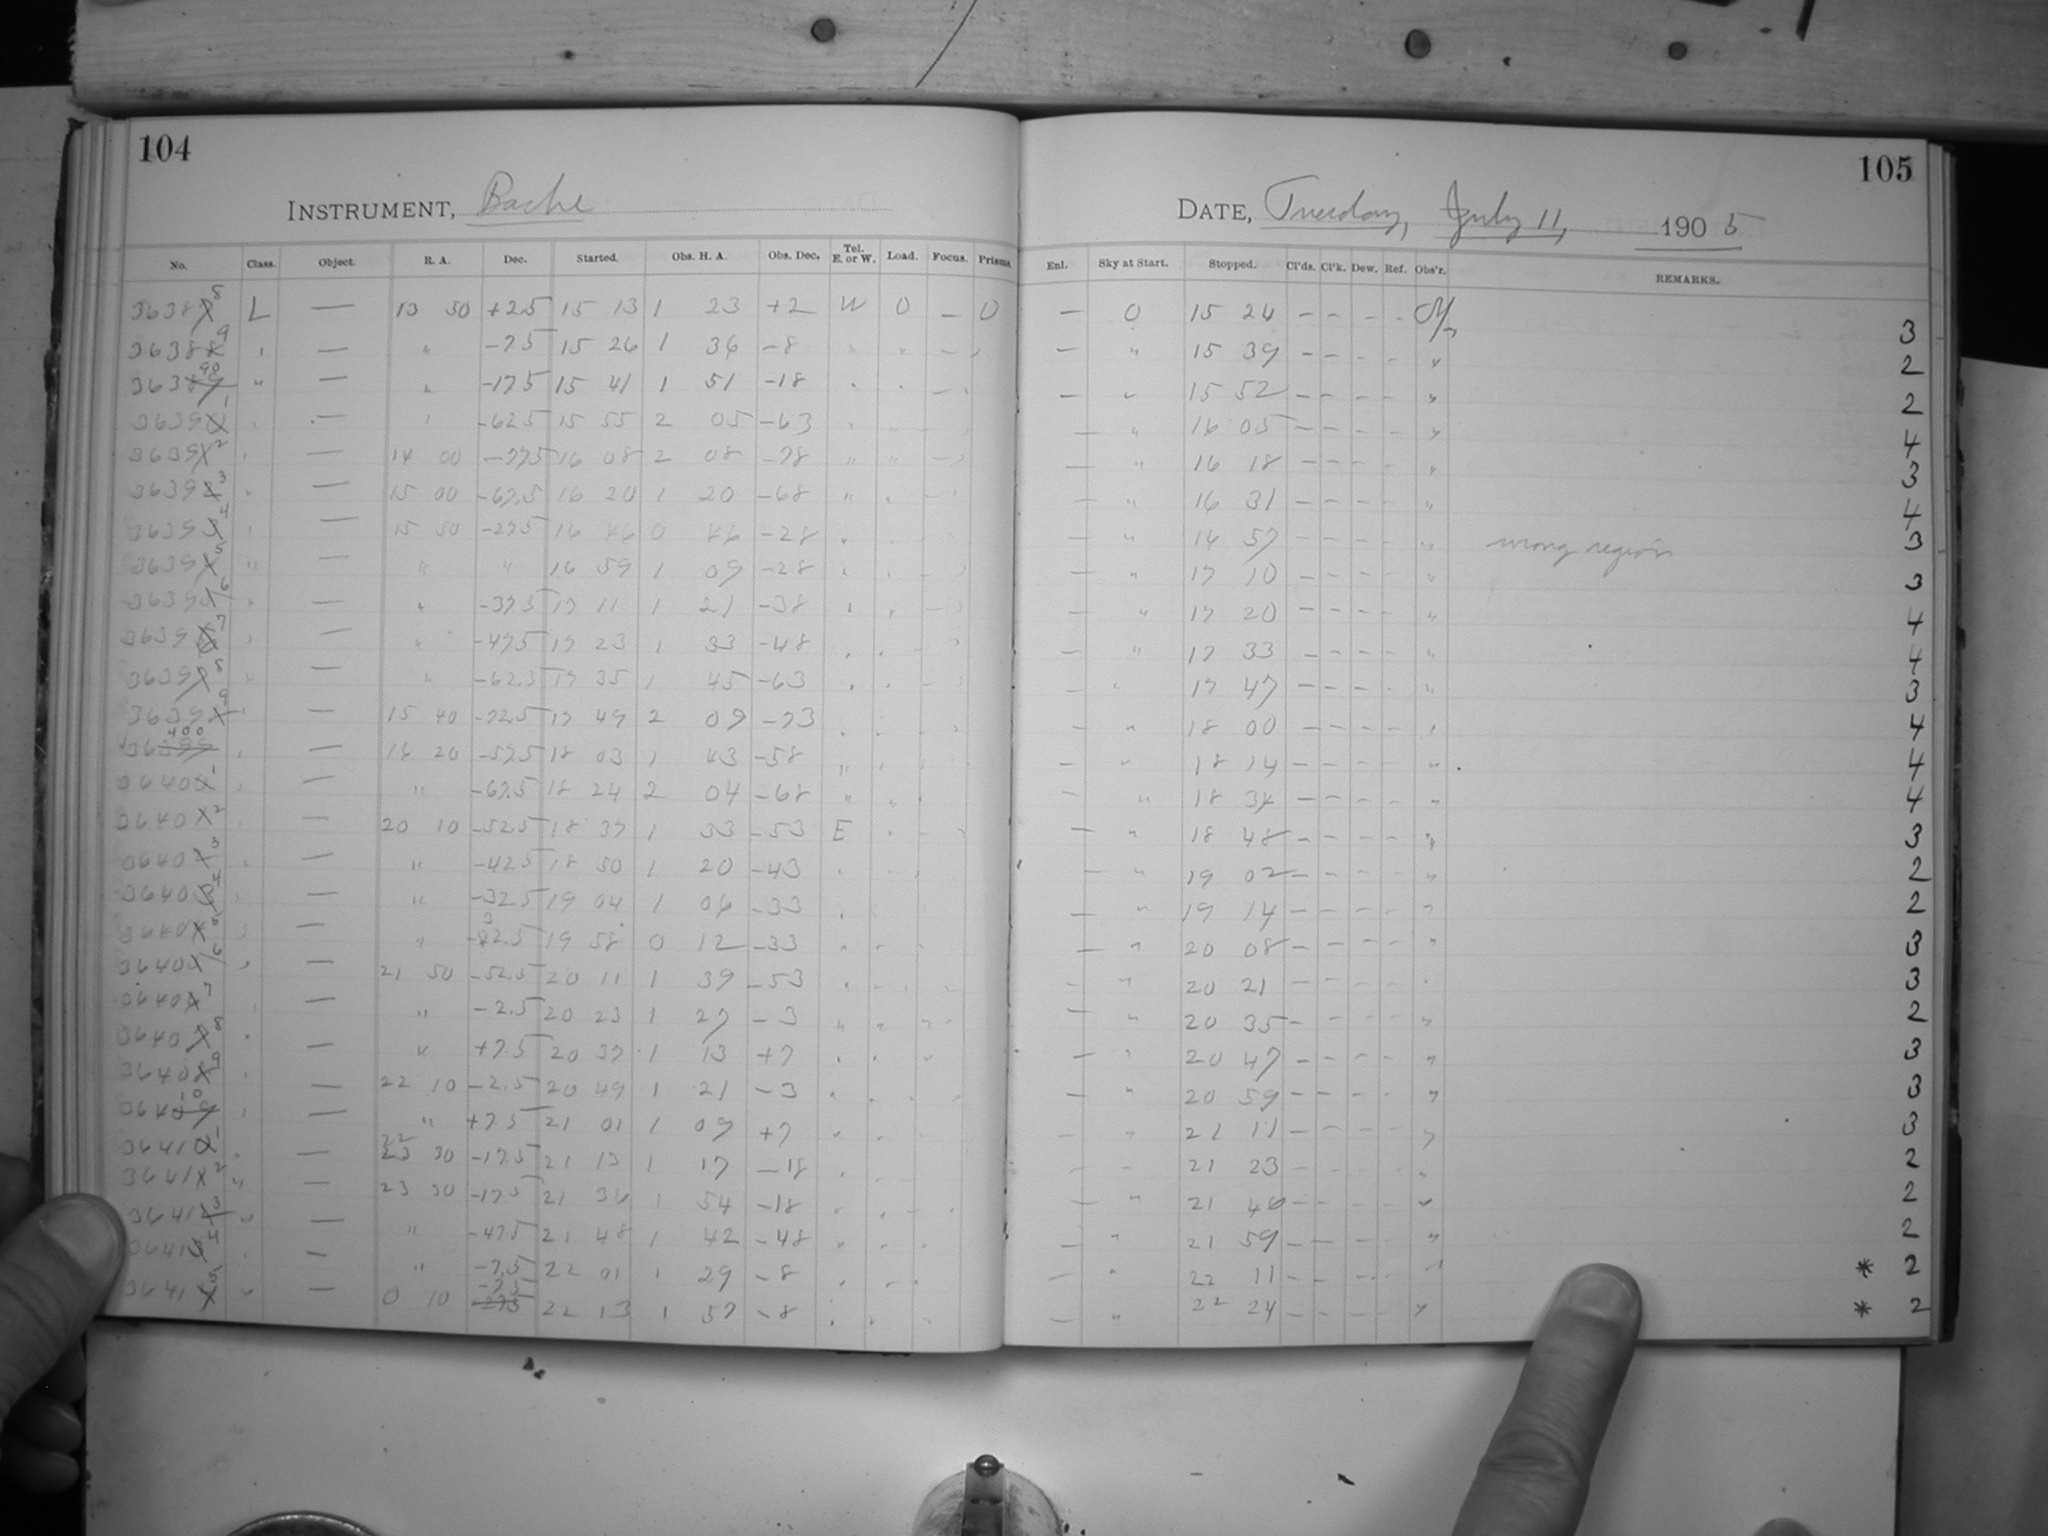 104
INSTRUMENT, Bache
No. Class. Object. R. A. Dec. Started. Obs. H. A. Obs. Dec. Tel. E. or W. Load. Focus. Prisms.
36388 L — 13 50 +2.5 15 13 1 23 +2 W 0 — 0
36389 " — " -7.5 15 26 1 36 -8
36390 " — " -17.5 15 41 1 51 -18
36391 — " -62.5 15 55 2 05 -63
36392 — 14 00 -77.5 16 08 2 08 -78
36393 — 15 00 -67.5 16 20 1 20 -68
36394 — 15 50 -27.5 16 46 0 46 -28
36395 " — " " 16 59 1 09 -28
36396 — " -37.5 17 11 1 21 -38
36397 — " -47.5 17 23 1 33 -48
36398 — " -62.5 17 35 1 45 -63
36399 — 15 40 -72.5 17 49 2 09 -73
36400 — 16 20 -57.5 18 03 1 43 -58
36401 — " -67.5 18 24 2 04 -68
36402 — 20 10 -52.5 18 37 1 33 -53 E
36403 — " -42.5 18 50 1 20 -43
36404 — " -32.5 19 04 1 06 -33
36405 — " -32.5 19 58 0 12 -33
36406 — 21 50 -52.5 20 11 1 39 -53
36407 — " -2.5 20 23 1 27 -3
36408 — " +7.5 20 37 1 13 +7
36409 — 22 10 -2.5 20 49 1 21 -3
36410 — " +7.5 21 01 1 09 +7
36411 — 22 30 -17.5 21 13 1 17 -18
36412 " — 23 30 -17.5 21 36 1 54 -18
36413 " — " -47.5 21 48 1 42 -48
36414 — " -7.5 22 01 1 29 -8
36415 " — 0 10 -7.5 22 13 1 57 -8
105
DATE, Tuesday, July 11, 1905
Enl. Sky at Start. Stopped. Cl'ds. Cl'k. Dew. Ref. Obs'r. REMARKS.
— 0 15 24 - - - - 3
— " 15 39 - - - - " 2
— " 15 52 - - - - " 2
— " 16 05 - - - - " 4
— " 16 18 - - - - " 3
— " 16 31 - - - - " 4
— " 16 57 - - - - " wrong region 3
— " 17 10 - - - - " 3
— " 17 20 - - - - " 4
— " 17 33 - - - - " 4
— " 17 47 - - - - " 3
— " 18 00 - - - - " 4
— " 18 14 - - - - " 4
— " 18 34 - - - - " 4
— " 18 48 - - - - " 3
— " 19 02 - - - - " 2
— " 19 14 - - - - " 2
— " 20 08 - - - - " 3
— " 20 21 - - - - " 3
— " 20 35 - - - - " 2
— " 20 47 - - - - " 3
— " 20 59 - - - - " 3
— " 21 11 - - - - " 3
— " 21 23 - - - - " 2
— " 21 46 - - - - " 2
— " 21 59 - - - - " 2
— " 22 11 - - - - " * 2
— " 22 24 - - - - " * 2